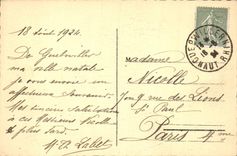 18 août 1924.
De Guebwiller
ma ville natale
je vous envoie un
affectueux souvenir.
Mes sincères salutations
à ces Messieurs Nicolle
plus tard.
Madame
Nicolle
rue des Lions
St Paul
Paris 4me
GUEBWILLER
HAUT-RHIN